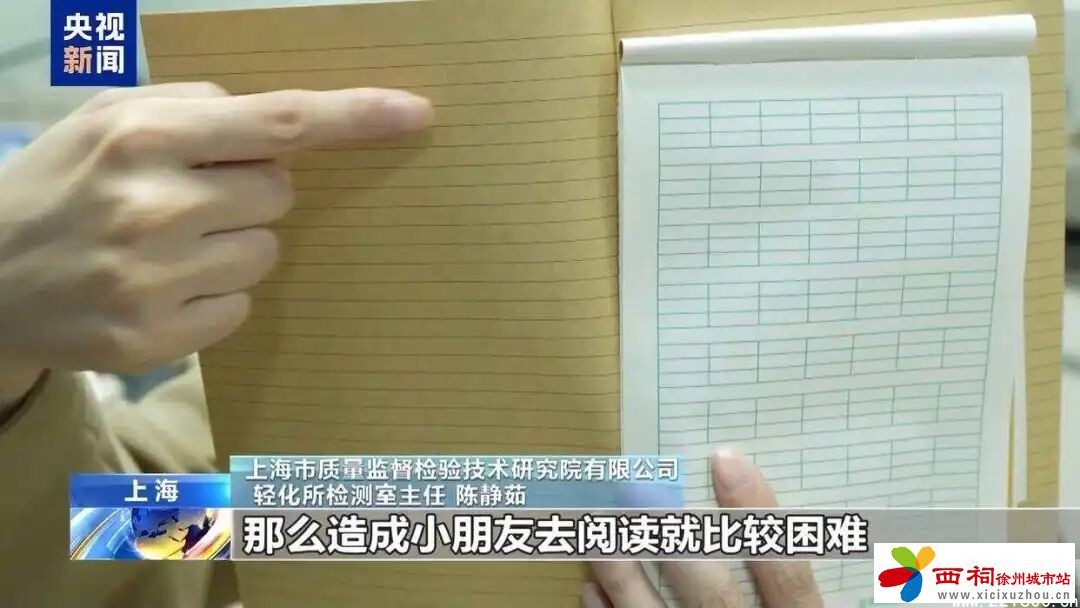 央视
新闻
上海市质量监督检验技术研究院有限公司
上海
轻化所检测室主任 陈静茹
那么造成小朋友去阅读就比较困难
西祠徐州城市站
www.xicixuzhou.cn